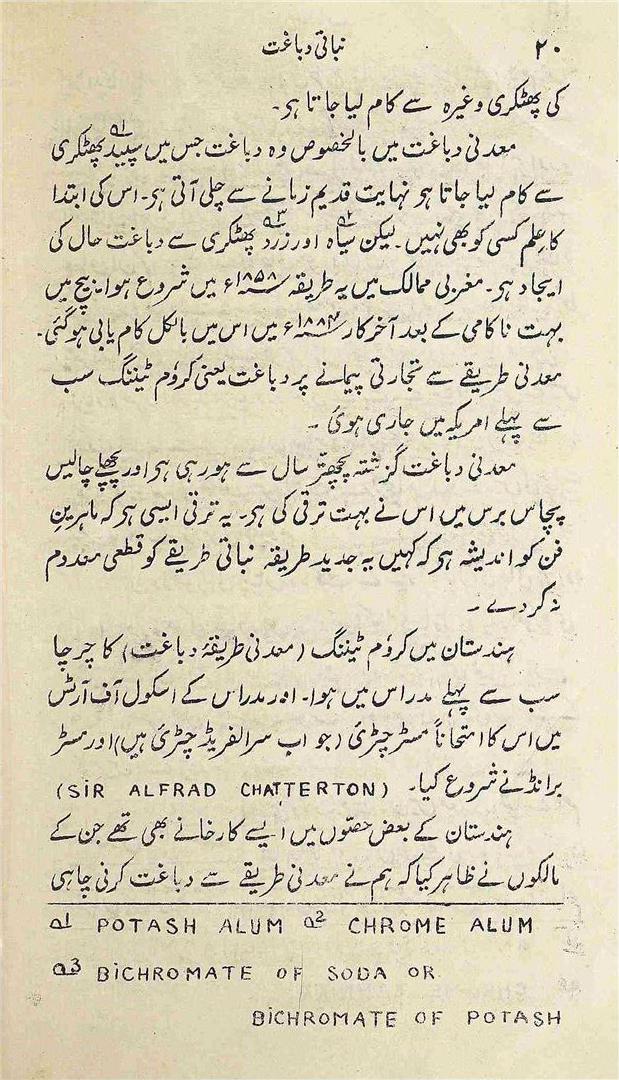 ۲۰
نباتی دباغت
کی پھٹکری وغیرہ سے کام لیا جاتا ہر۔
معدنی دباغت میں بالخصوص وہ دباغت جس میں سپید ؁۱ پھٹکری
سے کام لیا جاتا ہر نہایت قدیم زمانے سے چلی آتی ہر۔ اس کی ابتدا
کا علم کسی کو بھی نہیں۔ لیکن سیاہ ؁۲ اور زرد ؁۳ پھٹکری سے دباغت حال کی
ایجاد ہر۔ مغربی ممالک میں یہ طریقہ ۱۸۵۸؁ء میں شروع ہوا۔ بیچ میں
بہت ناکامی کے بعد آخر کار ۱۸۸۴؁ء میں اس میں بالکل کام یابی ہوگئی۔
معدنی طریقے سے تجارتی پیمانے پر دباغت یعنی کروم ٹیننگ سب
سے پہلے امریکہ میں جاری ہوئی ۔
معدنی دباغت گزشتہ پچھتّر سال سے ہو رہی ہر اور پچھلے چالیس
پچاس برس میں اس نے بہت ترقی کی ہر۔ یہ ترقی ایسی ہر کہ ماہرینِ
فن کو اندیشہ ہر کہ کہیں یہ جدید طریقہ نباتی طریقے کو قطعی معدوم
نہ کر دے ۔
ہندستان میں کروم ٹیننگ (معدنی طریقۂ دباغت) کا چرچا
سب سے پہلے مدراس میں ہوا۔ اور مدراس کے اسکول آف آرٹس
میں اس کا امتحاناً مسٹر چٹرئی (جو اب سر الفریڈ چٹرئی ہیں) اور مسٹر
برانڈ نے شروع کیا۔ (SIR ALFRAD CHATTERTON)
ہندستان کے بعض حصّوں میں ایسے کارخانے بھی تھے جن کے
مالکوں نے ظاہر کیا کہ ہم نے معدنی طریقے سے دباغت کرنی چاہی
؁1 POTASH ALUM ؁2 CHROME ALUM
؁3 BICHROMATE OF SODA OR
BICHROMATE OF POTASH